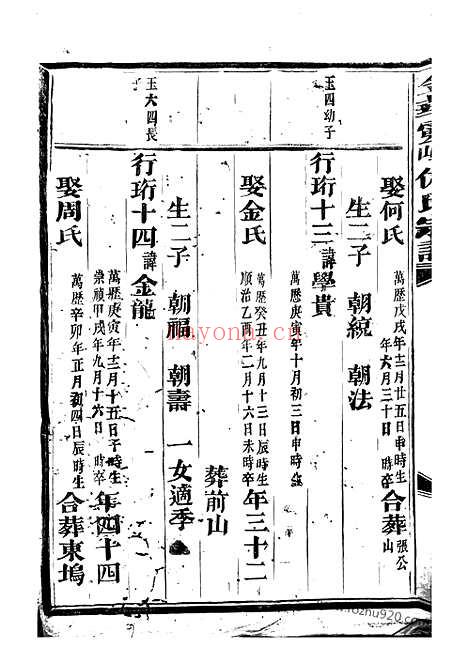 娶何氏 萬歷戊戌年十二月廿五日申時生 年六月三十日 時卒 合葬張公山
生二子 朝統 朝法
玉四幼子
行珩十三諱學貴 萬歷庚寅年十月初三日申時生
娶金氏 萬歷癸丑年九月十三日辰時生 順治乙酉年二月十六日未時卒 年三十二
葬前山
生二子 朝福 朝壽 一女適季
玉大四長
行珩十四諱金龍 萬歷庚寅年十二月十五日子時生 崇禎甲戌年九月十六日 時卒 年四十四
娶周氏 萬歷辛卯年正月初四日辰時生 合葬東塢
nayona.cn